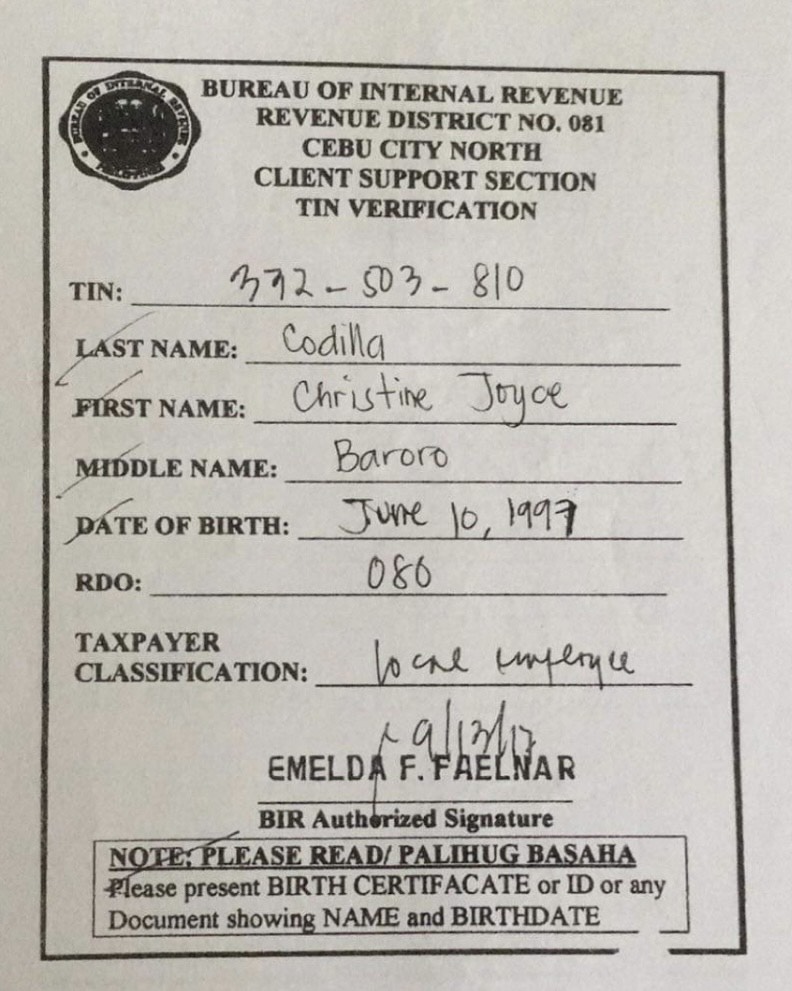 BUREAU OF INTERNAL REVENUE
REVENUE DISTRICT NO. 081
CEBU CITY NORTH
CLIENT SUPPORT SECTION
TIN VERIFICATION
TIN: 392-503-810
LAST NAME: Codilla
FIRST NAME: Christine Joyce
MIDDLE NAME: Baroro
DATE OF BIRTH: June 10, 1997
RDO: 080
TAXPAYER
CLASSIFICATION: local employee
9/13/17
EMELDA F. FAELNAR
BIR Authorized Signature
NOTE: PLEASE READ/ PALIHUG BASAHA
Please present BIRTH CERTIFACATE or ID or any
Document showing NAME and BIRTHDATE